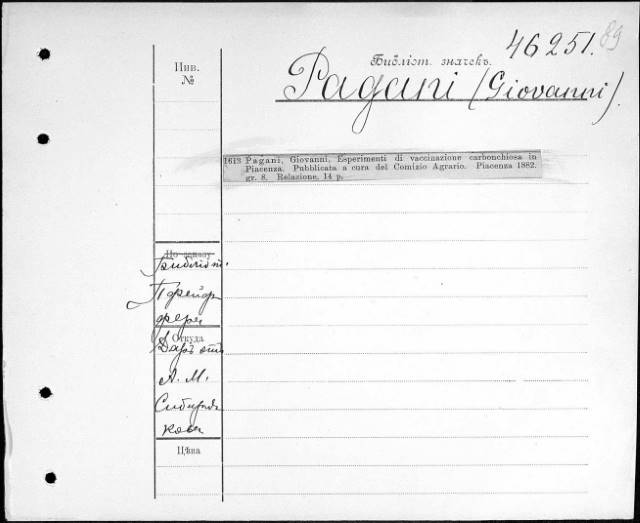 46251.
89
Инв.
№
Библіот. значекъ.
Pagani (Giovanni).
1613 Pagani, Giovanni, Esperimenti di vaccinazione carbonchiosa in
Piacenza. Pubblicata a cura del Comizio Agrario. Piacenza 1882.
gr. 8. Relazione, 14 p.
По заказу
Библіот.
Пфейф
фера
Откуда
Даръ отъ
А. М.
Сибиря
кова
Цѣна